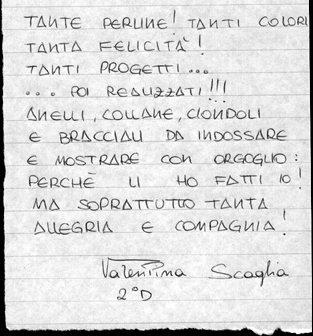 TANTE PERLINE! TANTI COLORI
TANTA FELICITÀ!
TANTI PROGETTI...
... POI REALIZZATI!!!
ANELLI, COLLANE, CIONDOLI
E BRACCIALI DA INDOSSARE
E MOSTRARE CON ORGOGLIO:
PERCHÈ LI HO FATTI IO!
MA SOPRATTUTTO TANTA
ALLEGRIA E COMPAGNIA!
Valentina Scaglia
2°D